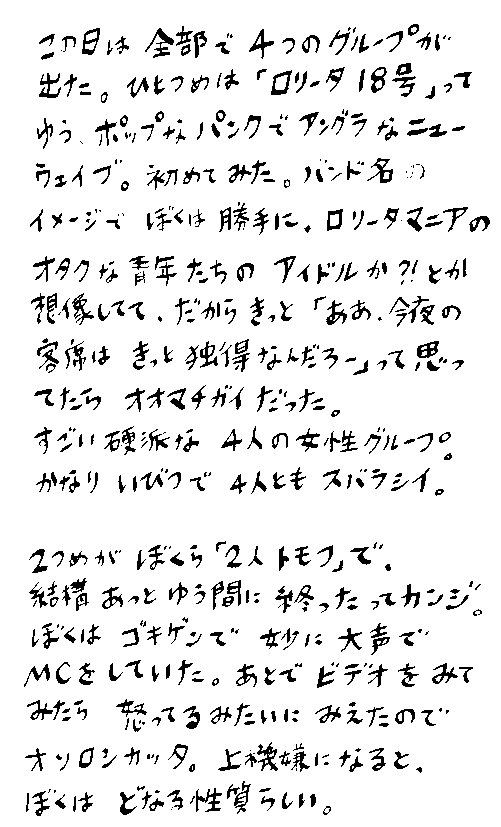 この日は全部で4つのグループが
出た。ひとつめは「ロリータ18号」って
ゆう、ポップなパンクでアングラなニュー
ウェイブ。初めてみた。バンド名の
イメージでぼくは勝手に、ロリータマニアの
オタクな青年たちのアイドルか?!とか
想像してて、だからきっと「ああ、今夜の
客席はきっと独得なんだろー」って思っ
てたらオオマチガイだった。
すごい硬派な4人の女性グループ。
かなりいびつで4人ともスバラシイ。
2つめがぼくら「2人トモフ」で、
結構あっとゆう間に終ったってカンジ。
ぼくはゴキゲンで妙に大声で
MCをしていた。あとでビデオをみて
みたら怒ってるみたいにみえたので
オソロシカッタ。上機嫌になると、
ぼくはどなる性質らしい。